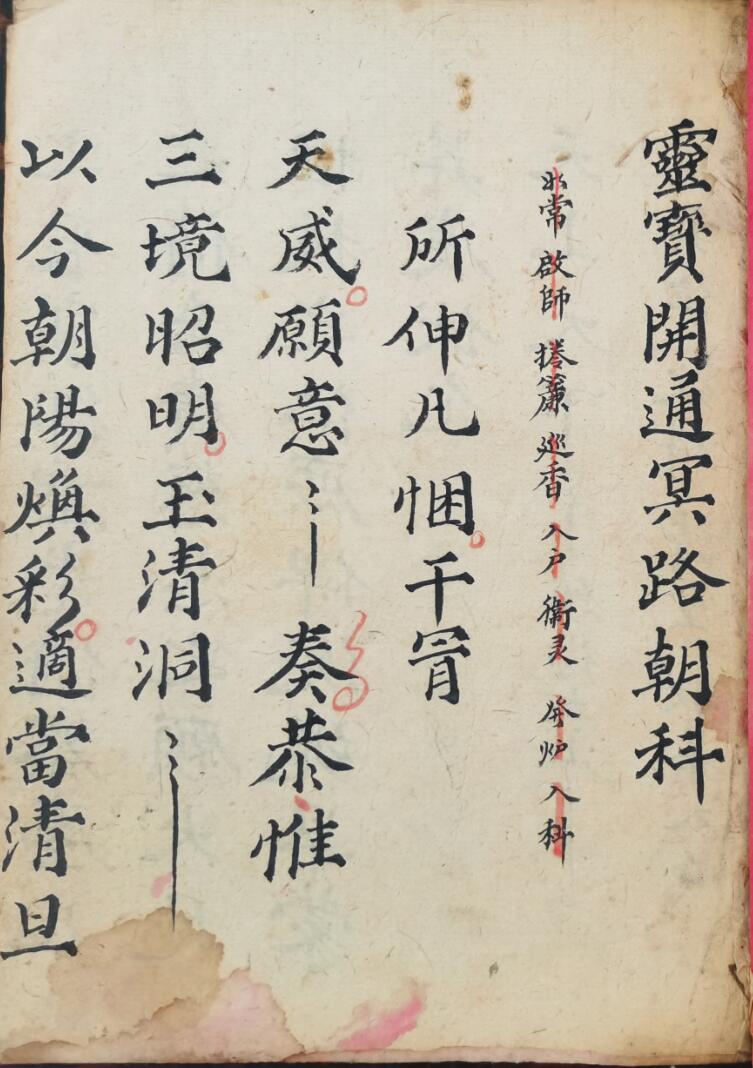 靈寳開通冥路朝科
如常 啟師 捲簾 巡香 入户 衛灵 發炉 入科
所伸凡悃干冐
天威願意〻 奏恭惟
三境昭明玉清洞〻
以今朝陽煥彩適當清旦